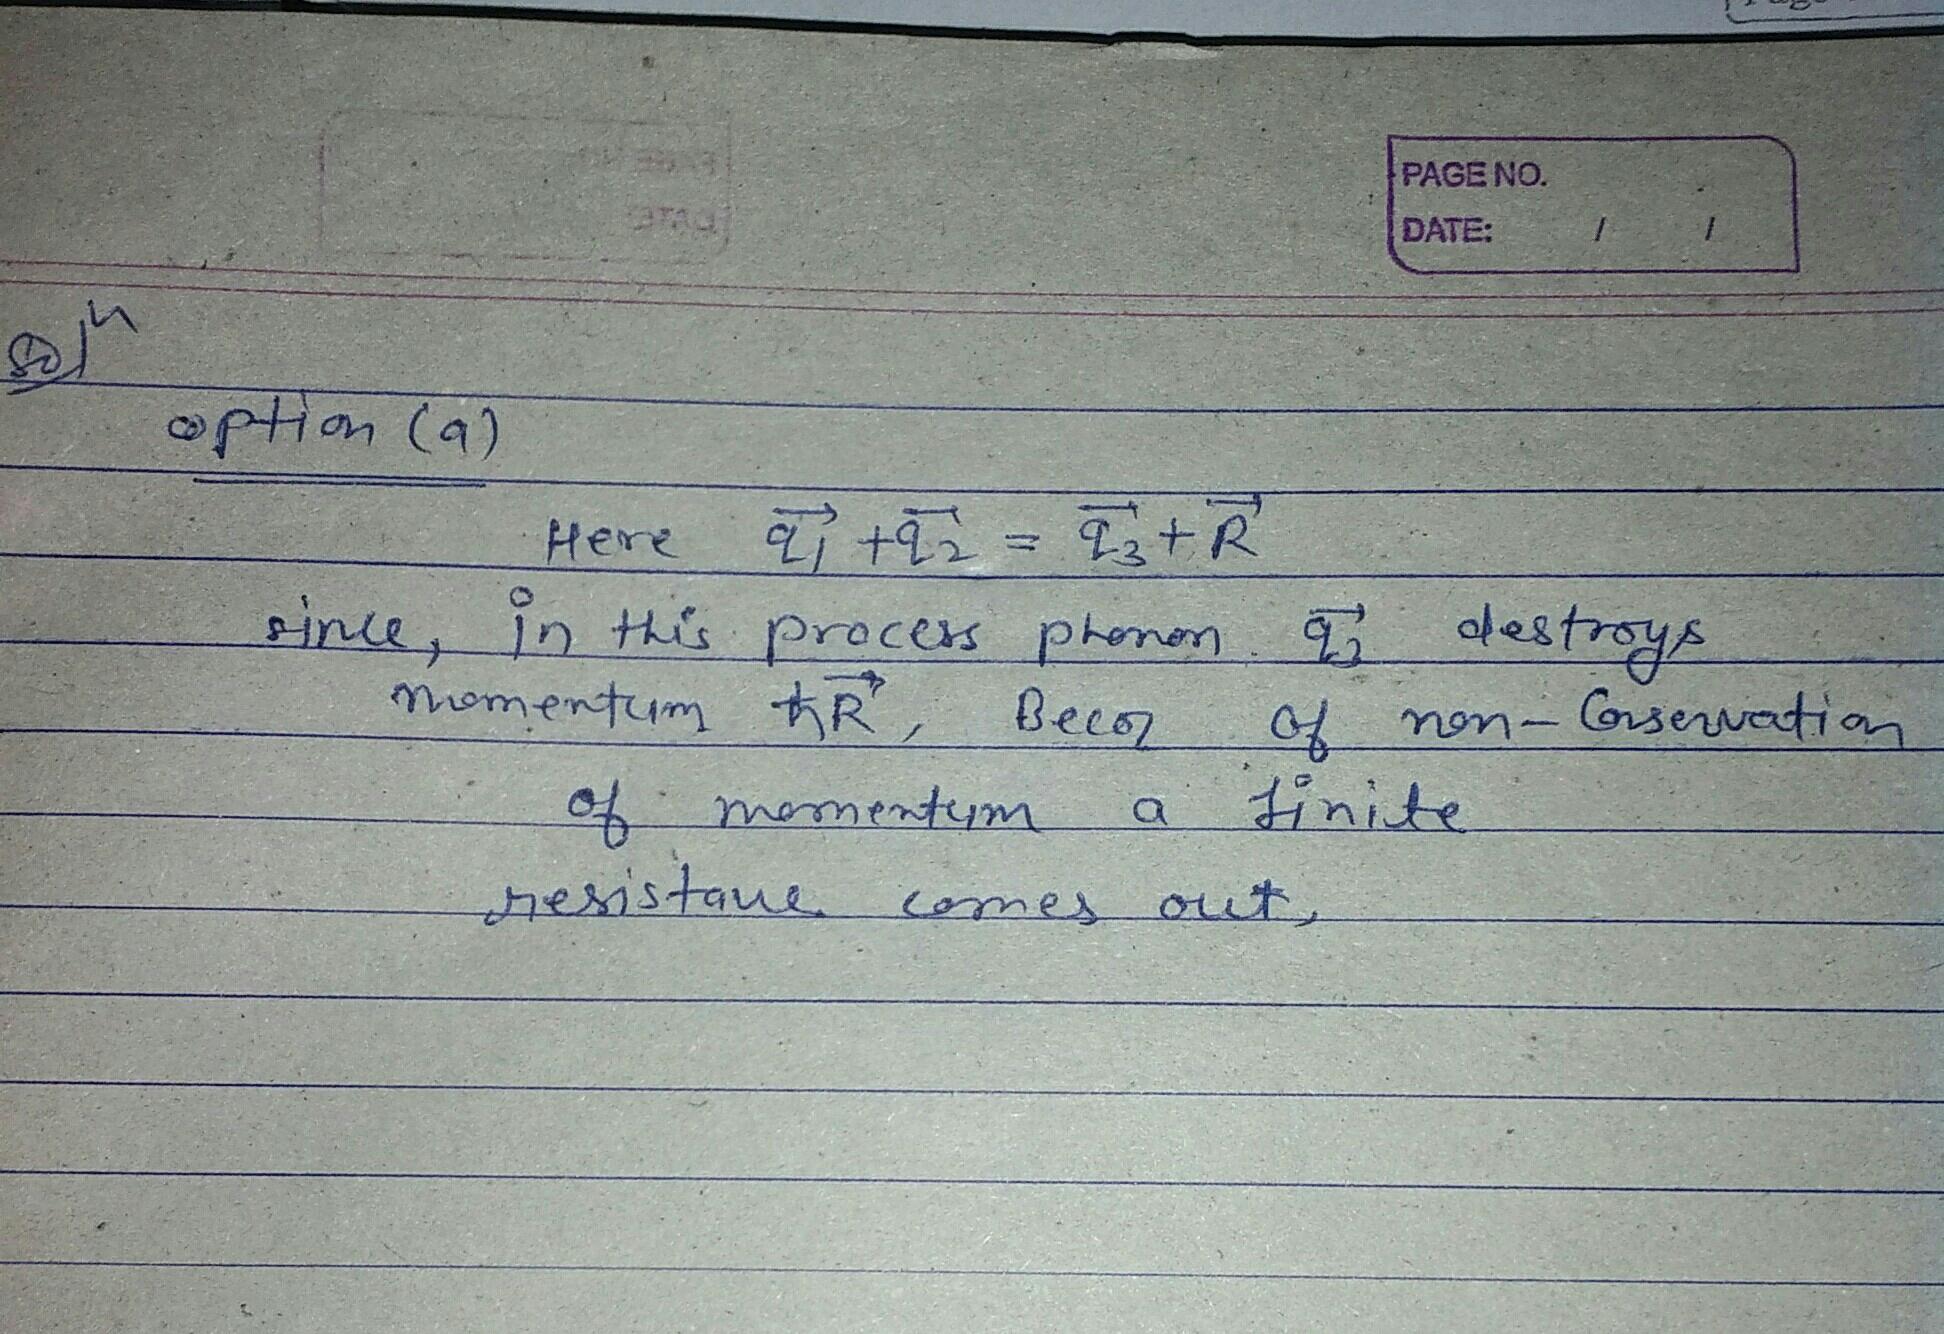 PAGE NO.
DATE: / /
Solⁿ
option (a)
Here q⃗₁ + q⃗₂ = q⃗₃ + R⃗
since, in this process phonon q⃗₃ destroys
momentum ℏR⃗, Becoz of non-Conservation
of momentum a finite
resistance comes out,